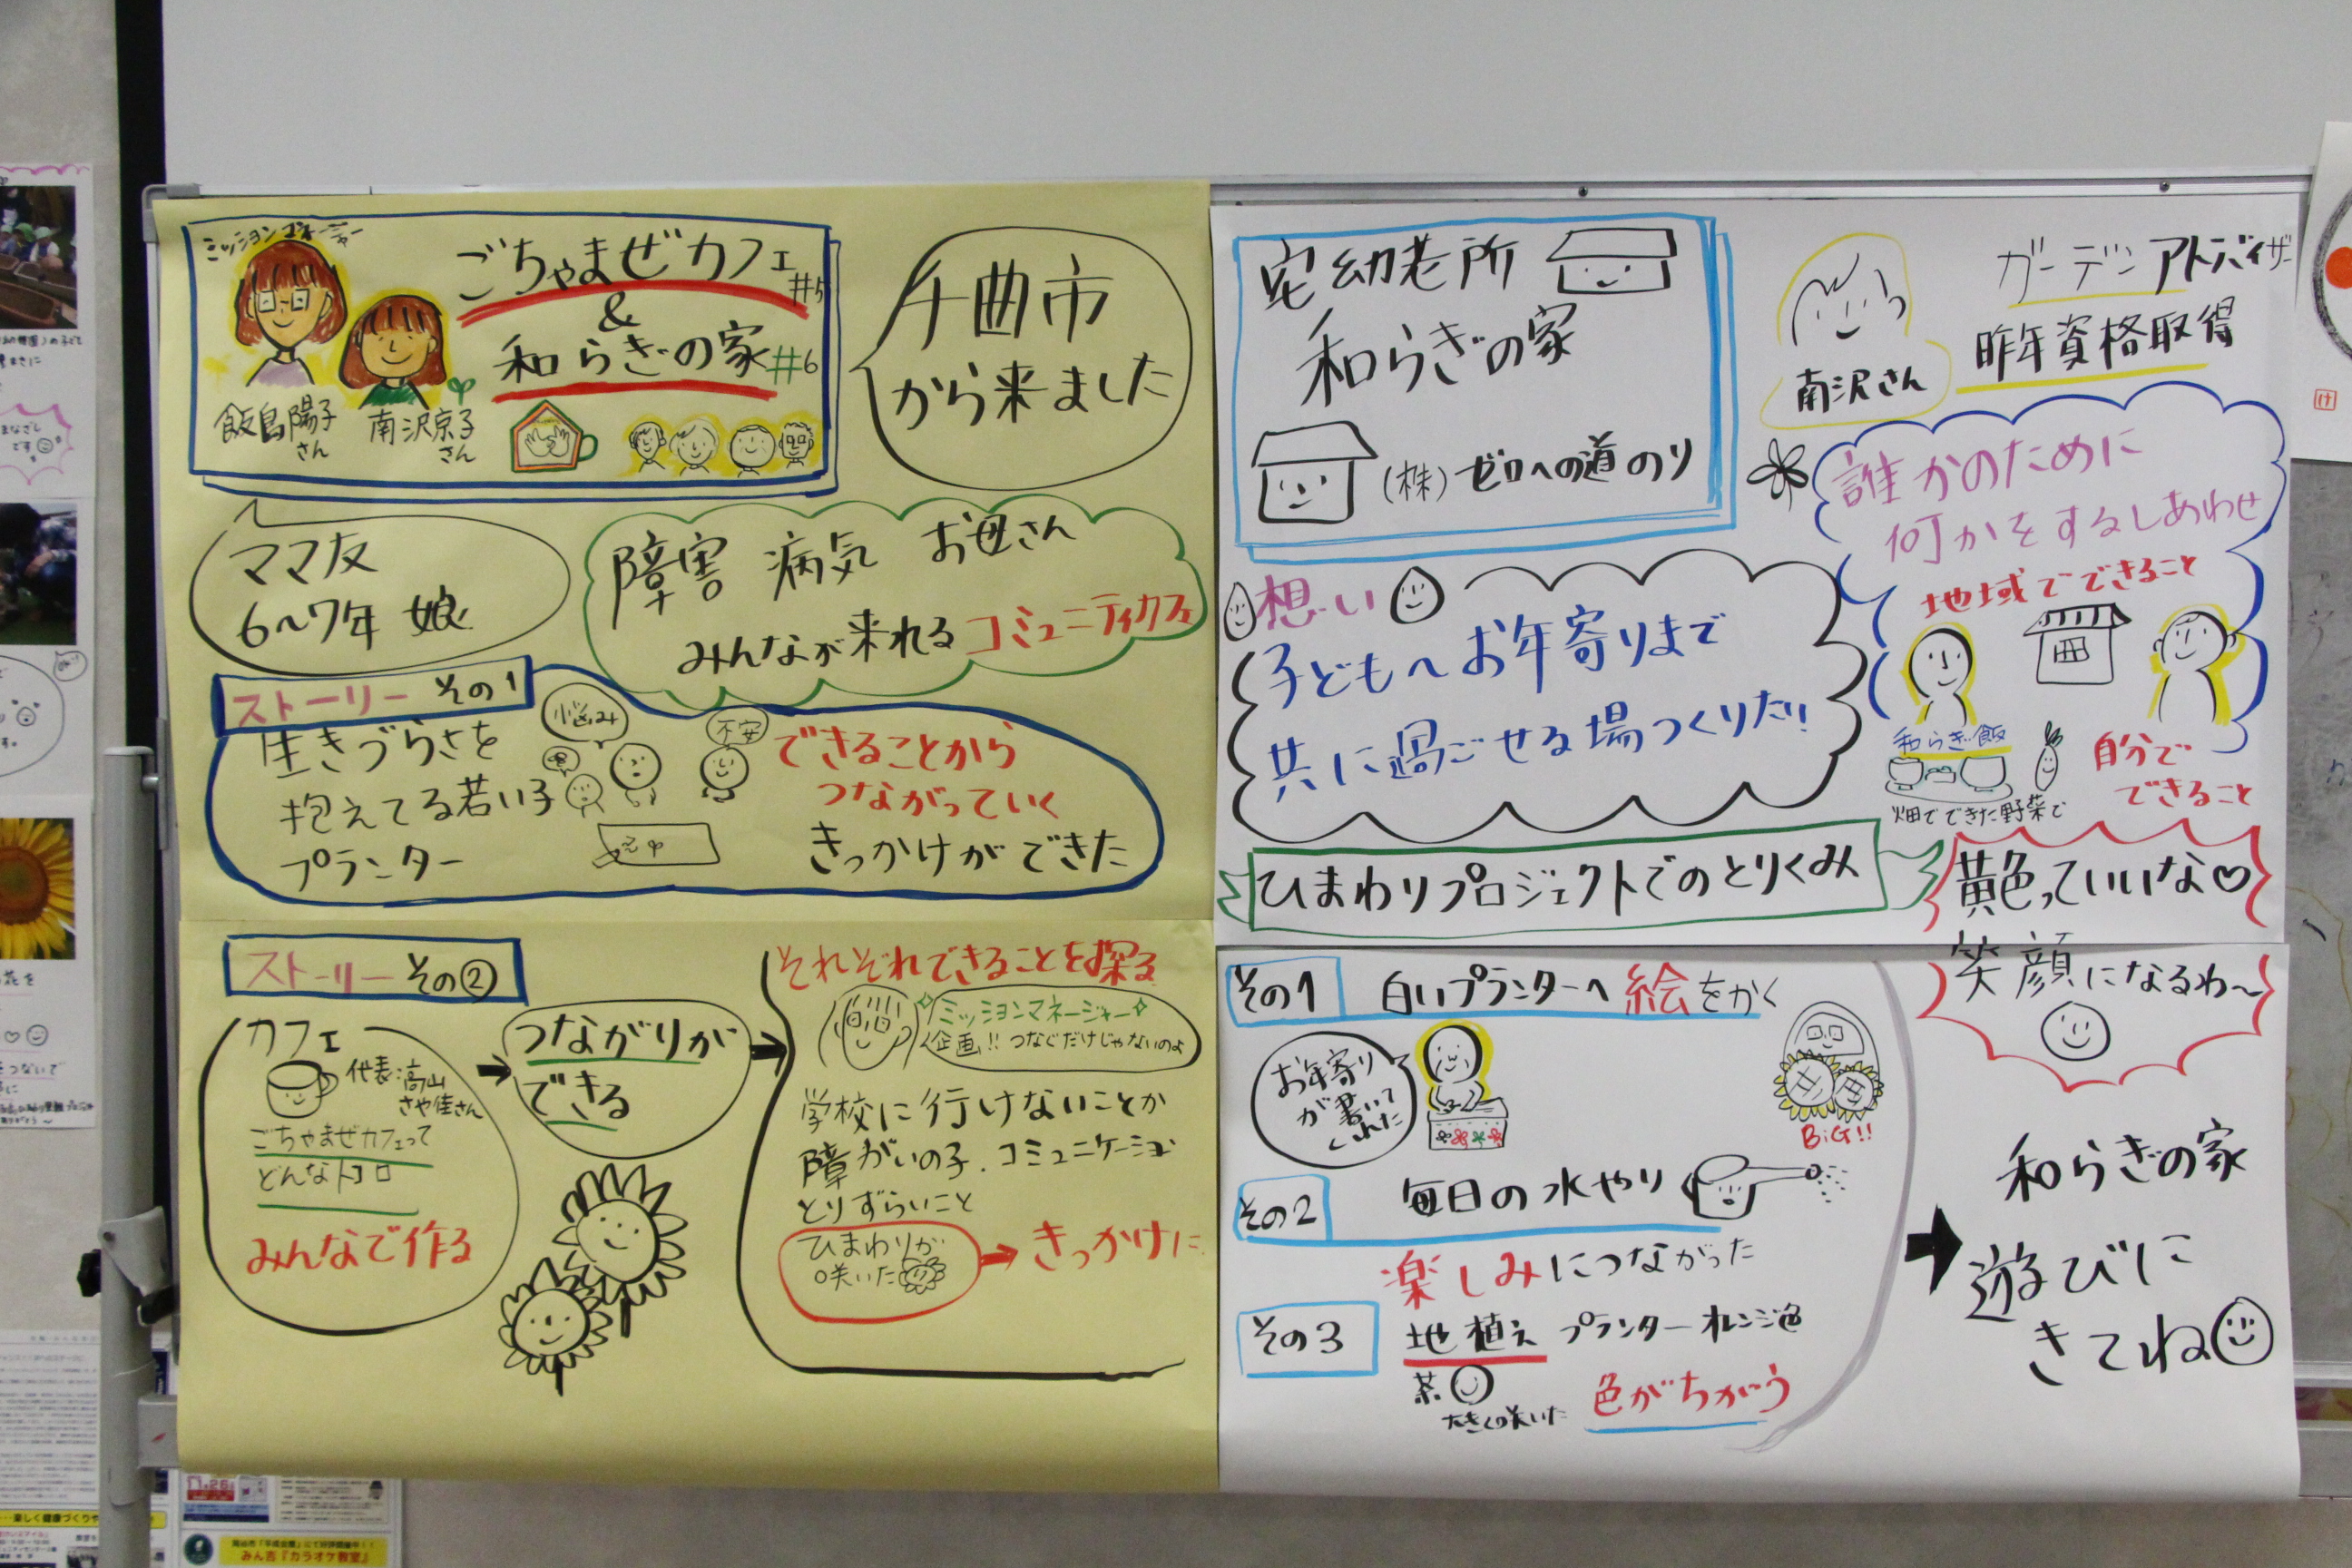 ミッションマネージャー
ごちゃまぜカフェ #5
&
和らぎの家 #6
飯島陽子さん
南沢京子さん
千曲市
から来ました
ママ友
6〜7年 娘
障害 病気 お母さん
みんなが来れるコミュニティカフェ
ストーリー その1
生きづらさを
抱えてる若い子
プランター
悩み
不安
できることから
つながっていく
きっかけができた
ストーリー その②
カフェ
代表:高山
さや佳さん
ごちゃまぜカフェって
どんなトコロ
みんなで作る
つながりが
できる
それぞれできることを探る
ミッションマネージャー
企画!! つなぐだけじゃないのよ
学校に行けないことか
障がいの子、コミュニケーション
とりずらいこと
ひまわりが
咲いた
きっかけに
宅幼老所
和らぎの家
(株)ゼロへの道のり
南沢さん
ガーデンアドバイザー
昨年資格取得
誰かのために
何かをするしあわせ
地域でできること
和らぎ飯
畑でできた野菜で
自分で
できること
想い
子どもへお年寄りまで
共に過ごせる場つくりたい!
ひまわりプロジェクトでのとりくみ
黄色っていいな♡
笑顔になるわ〜
その1
白いプランターへ絵をかく
お年寄り
が書いて
くれた
BiG!!
その2
毎日の水やり
楽しみにつながった
その3
地植え プランター オレンジ色
茶
大きく咲いた
色がちがう
和らぎの家
遊びに
きてね